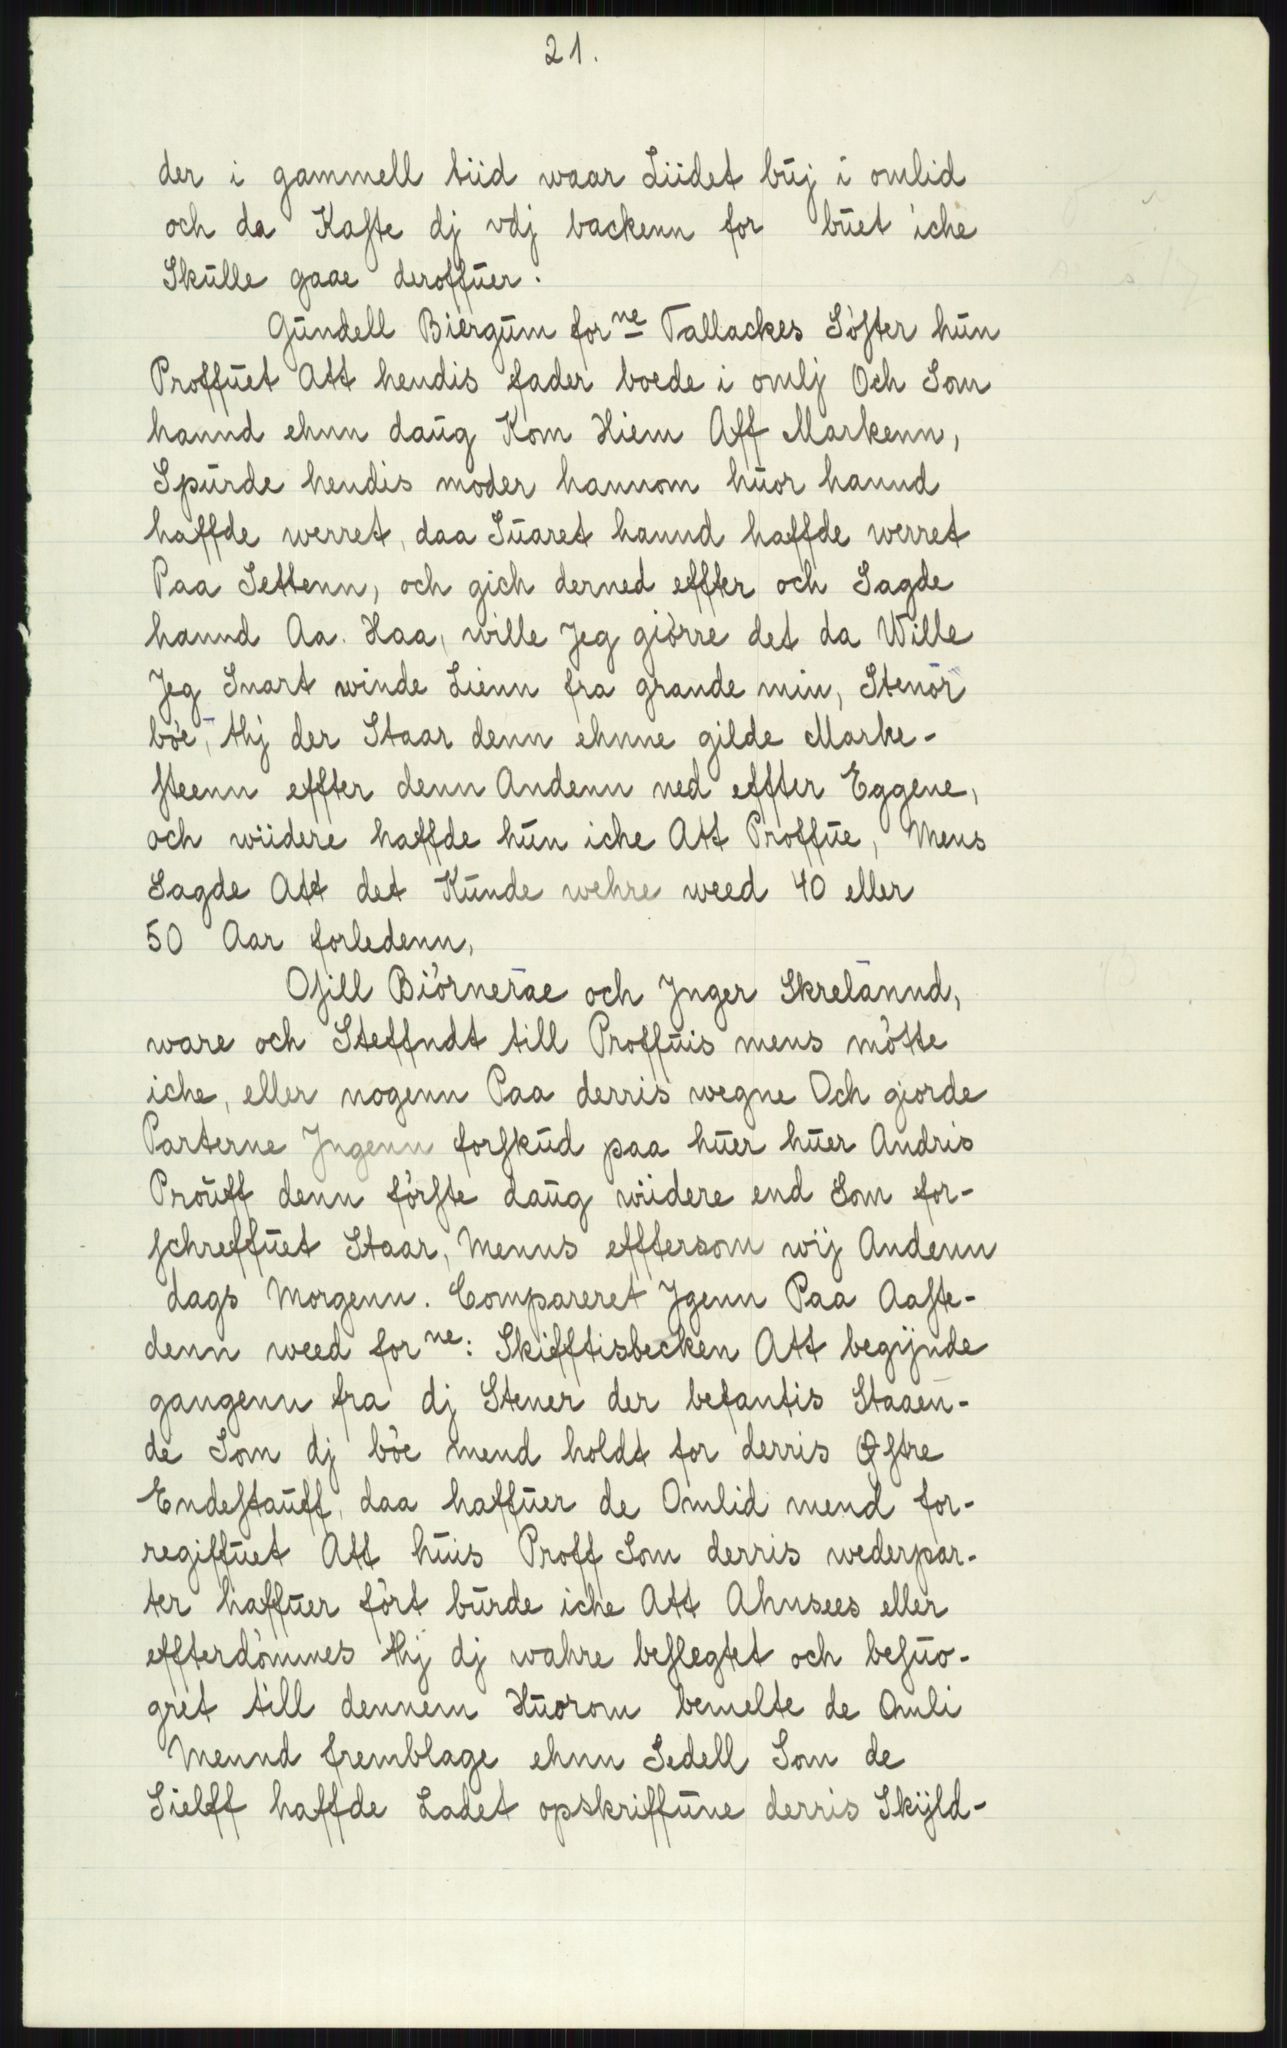 21.
der i gammell tiid waar Liidet buj i omlid
och da Kaste dj vdj backenn for buet iche
Skulle gaae deroffuer.
Gundell Biergum for<sup>ne</sup> Tallackes Söster hun
Proffuet Att hendis fader boede i omlj Och Som
hannd ehnn daug Kom Hiem Aff Markenn,
Spurde hendis moder hannom huor hannd
haffde werret, daa Suaret hannd haffde werret
Paa Settenn, och gich derned effter och Sagde
hannd Aa. Haa, wille Jeg giörre det da Wille
Jeg Snart winde Lienn fra grande min, Stenör
böe, thj der Staar denn ehnne gilde Marke-
steenn effter denn Andenn ned effter Eggene,
och wiidere haffde hun iche Att Proffue, Mens
Sagde Att det Kunde wehre weed 40 eller
50 Aar forledenn,
Osill Biörneräe och Jnger Skreländ,
ware och Steffndt till Proffuis mens mötte
iche, eller nogenn Paa derris wegne Och giorde
Parterne Jngenn forskud paa huer huer Andris
Prouff denn förste daug wiidere end Som for-
schreffuet Staar, Menns efftersom wij Andenn
dags Morgenn. Compareret Jgenn Paa Aaste-
denn weed for<sup>ne</sup>: Skifftisbecken Att begynde
gangenn fra dj Stener der befantis Staaen-
de Som dj böe mend holdt for derris Østre
Endestauff, daa haffuer de Omlid mend for-
regiffuet Att huis Proff Som derris wederpar-
ter haffuer fört burde iche Att Ahnsees eller
effterdömmes thj dj wahre beslegtet och besuo-
gret till dennem Huorom bemelte de Omli
Mennd fremblage ehnn Sedell Som de
Sielff haffde Ladet opskriffune derris Skyld-